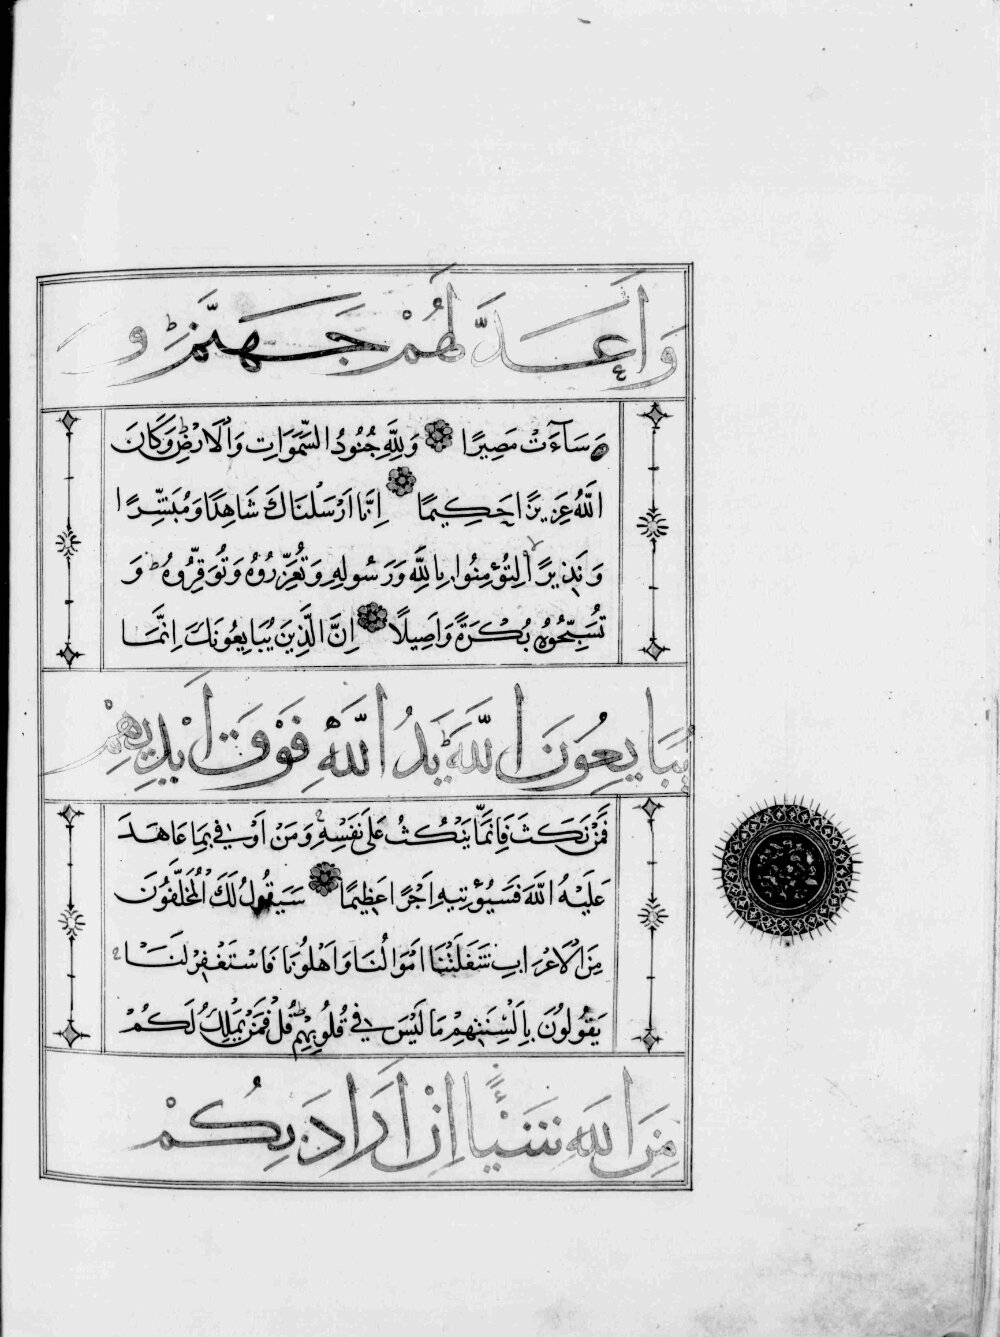 وَاَعَدَّ لَهُمْ جَهَنَّمَ ط وَ
وَسَآءَتْ مَصِيرًا وَلِلّٰهِ جُنُودُ السَّمٰوَاتِ وَالْاَرْضِ ط وَكَانَ
اللّٰهُ عَزِيزًا حَكِيمًا اِنَّا اَرْسَلْنَاكَ شَاهِدًا وَمُبَشِّرًا
وَنَذِيرًا لا لِتُؤْمِنُوا بِاللّٰهِ وَرَسُولِهِ وَتُعَزِّرُوهُ وَتُوَقِّرُوهُ ط وَ
تُسَبِّحُوهُ بُكْرَةً وَاَصِيلًا اِنَّ الَّذِينَ يُبَايِعُونَكَ اِنَّمَا
يُبَايِعُونَ اللّٰهَ ط يَدُ اللّٰهِ فَوْقَ اَيْدِيهِمْ
فَمَنْ نَكَثَ فَاِنَّمَا يَنْكُثُ عَلٰى نَفْسِهِ وَمَنْ اَوْفٰى بِمَا عَاهَدَ
عَلَيْهُ اللّٰهَ فَسَيُؤْتِيهِ اَجْرًا عَظِيمًا سَيَقُولُ لَكَ الْمُخَلَّفُونَ
مِنَ الْاَعْرَابِ شَغَلَتْنَا اَمْوَالُنَا وَاَهْلُونَا فَاسْتَغْفِرْ لَنَا
يَقُولُونَ بِاَلْسِنَتِهِمْ مَا لَيْسَ فِي قُلُوبِهِمْ ط قُلْ فَمَنْ يَمْلِكُ لَكُمْ
مِنَ اللّٰهِ شَيْئًا اِنْ اَرَادَ بِكُمْ